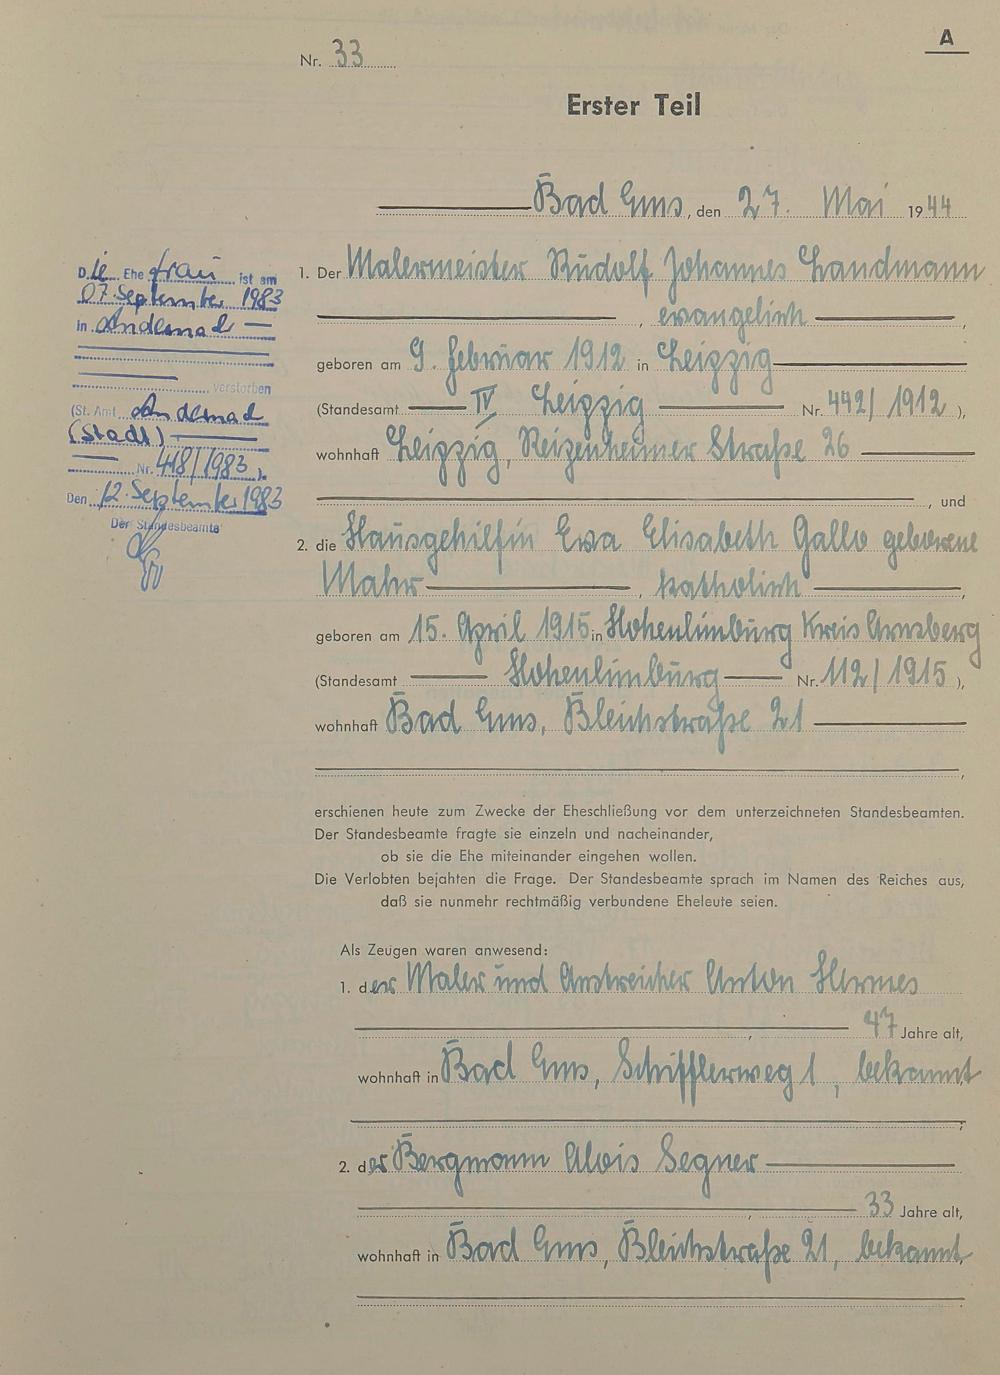 A
Nr. 33
Erster Teil
Bad Ems, den 27. Mai 1944
1. Der Malermeister Rudolf Johannes Landmann
, evangelisch ,
geboren am 9. Februar 1912 in Leipzig
(Standesamt IV Leipzig Nr. 442/1912),
wohnhaft Leipzig, Reizenheimer Straße 26
, und
2. die Hausgehilfin Eva Elisabeth Gallo geborene
Mahr , katholisch ,
geboren am 15. April 1915 in Hohenlimburg Kreis Arnsberg
(Standesamt Hohenlimburg Nr. 112/1915),
wohnhaft Bad Ems, Bleichstraße 21
,
erschienen heute zum Zwecke der Eheschließung vor dem unterzeichneten Standesbeamten.
Der Standesbeamte fragte sie einzeln und nacheinander,
ob sie die Ehe miteinander eingehen wollen.
Die Verlobten bejahten die Frage. Der Standesbeamte sprach im Namen des Reiches aus,
daß sie nunmehr rechtmäßig verbundene Eheleute seien.
Als Zeugen waren anwesend:
1. der Maler und Anstreicher Anton Hermes
, 47 Jahre alt,
wohnhaft in Bad Ems, Schifflerweg 1, bekannt
,
2. der Bergmann Alois Segner
, 33 Jahre alt,
wohnhaft in Bad Ems, Bleichstraße 21, bekannt,
Die Ehefrau ist am
07. September 1983
in Andernach
verstorben
(St. Amt Andernach
(Stadt)
Nr. 418/1983).
Den 12. September 1983
Der Standesbeamte